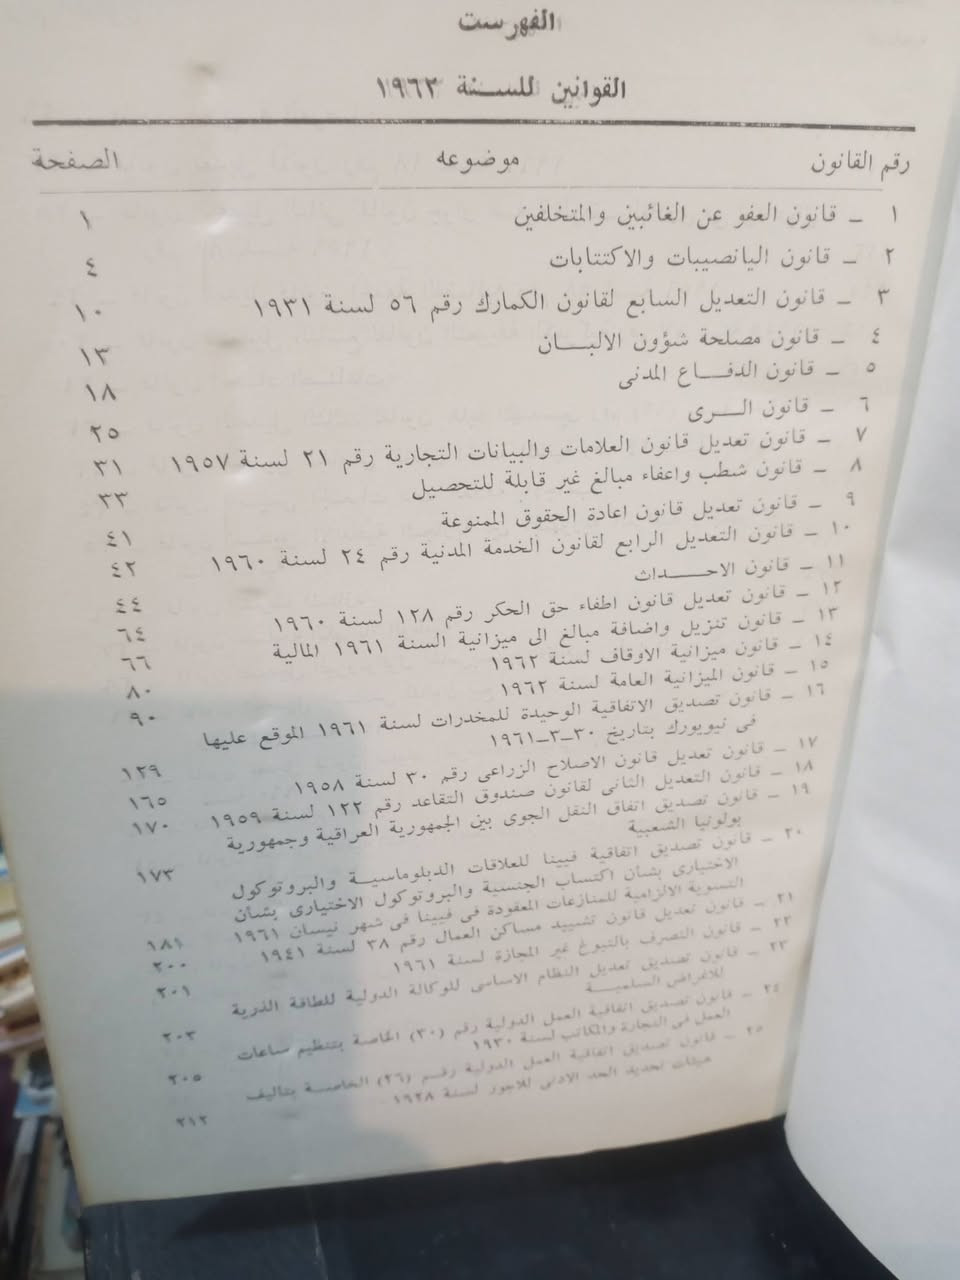 الفهرست
القوانين للسنة ١٩٦٢
رقم القانون موضوعه الصفحة
١ ـ قانون العفو عن الغائبين والمتخلفين ١
٢ ـ قانون اليانصيبات والاكتتابات ٤
٣ ـ قانون التعديل السابع لقانون الكمارك رقم ٥٦ لسنة ١٩٣١ ١٠
٤ ـ قانون مصلحة شؤون الالبان ١٣
٥ ـ قانون الدفاع المدنى ١٨
٦ ـ قانون الرى ٢٥
٧ ـ قانون تعديل قانون العلامات والبيانات التجارية رقم ٢١ لسنة ١٩٥٧ ٣١
٨ ـ قانون شطب واعفاء مبالغ غير قابلة للتحصيل ٣٣
٩ ـ قانون تعديل قانون اعادة الحقوق الممنوعة ٤١
١٠ ـ قانون التعديل الرابع لقانون الخدمة المدنية رقم ٢٤ لسنة ١٩٦٠ ٤٢
١١ ـ قانون الاحداث ٤٤
١٢ ـ قانون تعديل قانون اطفاء حق الحكر رقم ١٢٨ لسنة ١٩٦٠ ٦٤
١٣ ـ قانون تنزيل واضافة مبالغ الى ميزانية السنة ١٩٦١ المالية ٦٦
١٤ ـ قانون ميزانية الاوقاف لسنة ١٩٦٢ ٨٠
١٥ ـ قانون الميزانية العامة لسنة ١٩٦٢ ٩٠
١٦ ـ قانون تصديق الاتفاقية الوحيدة للمخدرات لسنة ١٩٦١ الموقع عليها
فى نيويورك بتاريخ ٣٠ـ٣ـ١٩٦١ ١٢٩
١٧ ـ قانون تعديل قانون الاصلاح الزراعى رقم ٣٠ لسنة ١٩٥٨ ١٦٥
١٨ ـ قانون التعديل الثانى لقانون صندوق التقاعد رقم ١٢٢ لسنة ١٩٥٩ ١٧٠
١٩ ـ قانون تصديق اتفاق النقل الجوى بين الجمهورية العراقية وجمهورية
بولونيا الشعبية ١٧٣
٢٠ ـ قانون تصديق اتفاقية فيينا للعلاقات الدبلوماسية والبروتوكول
الاختيارى بشأن اكتساب الجنسية والبروتوكول الاختيارى بشأن
التسوية الالزامية للمنازعات المعقودة فى فيينا فى شهر نيسان ١٩٦١ ١٨١
٢١ ـ قانون تعديل قانون تشييد مساكن العمال رقم ٣٨ لسنة ١٩٤١ ٢٠٠
٢٢ ـ قانون التصرف بالتبوغ غير المجازة لسنة ١٩٦١ ٢٠١
٢٣ ـ قانون تصديق تعديل النظام الاساسى للوكالة الدولية للطاقة الذرية
للاغراض السلمية ٢٠٣
٢٤ ـ قانون تصديق اتفاقية العمل الدولية رقم (٣٠) الخاصة بتنظيم ساعات
العمل فى التجارة والمكاتب لسنة ١٩٣٠ ٢٠٥
٢٥ ـ قانون تصديق اتفاقية العمل الدولية رقم (٢٦) الخاصة بتأليف
هيئات تحديد الحد الادنى للاجور لسنة ١٩٢٨ ٢١٢